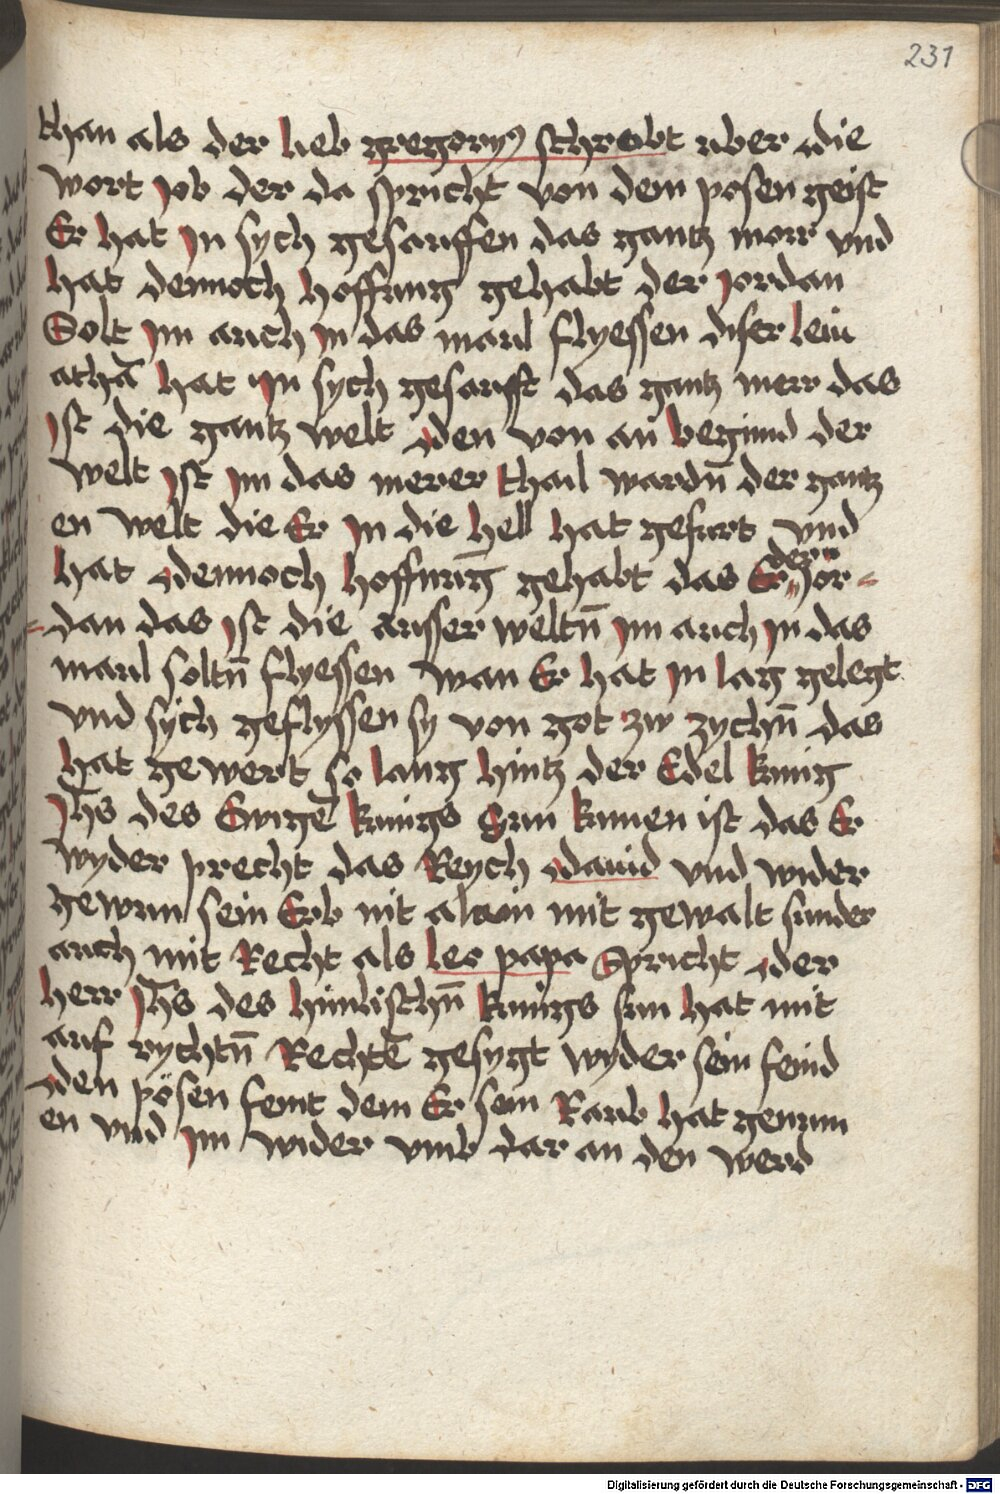 231
than als der lieb gregoryꝰ schreibt uber die
wort Job der da spricht von dem posen geist
Er hat In sych gesauffen das gantz morr vnd
hat dennoch hoffnung gehabt der Jordan
Solt Im auch In das maul flyessen diser leui
athā hat In sych gesaufft das gantz merr das
Ist die gantz welt den von an begind der
welt Ist Im das merer thail wardn̄ der gantz
en welt die Er In die hell hat gefurt vnd
hat dennoch hoffnūg gehabt das Er der Jor=
=dan das Ist die ausser weltn̄ Im auch In das
maul soltn̄ flyessen wan Er hat In lag gelegt
vnd sych geflyssen sy von got zw zychn̄ das
hat gewert so lang hintz der Edel kunig
Jh̄s des Ewigē kunigs Sun kumen ist das Er
wyder precht das Reych dauid vnd wider
gewun sein Erb nit alain mit gewalt sunder
auch mit Recht als leo papa Spricht der
herr Jh̄s des himlischn̄ kunigs sun hat mit
auf rychtn̄ Rechtē gesygt wyder sein feind
den pösen feint dem Er sein Raub hat genum
en vnd Im wider vmb dar an den werd
Digitalisierung gefördert durch die Deutsche Forschungsgemeinschaft - DFG